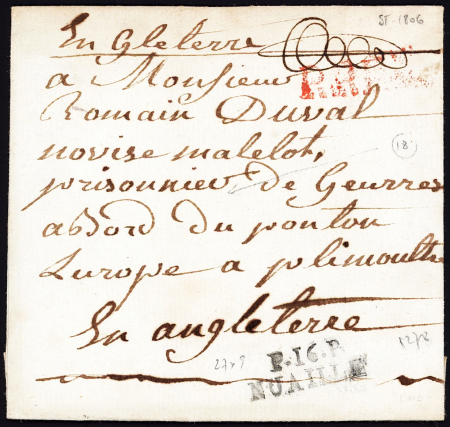 En Gleterre
SF-1806
a Monsieur
Romain Duval
novise matelot,
18
prisonnier de Geurres
abord du ponton
Europe a plimoulth
En angleterre
P.16.P
27x9
1278
NUAILLÉ